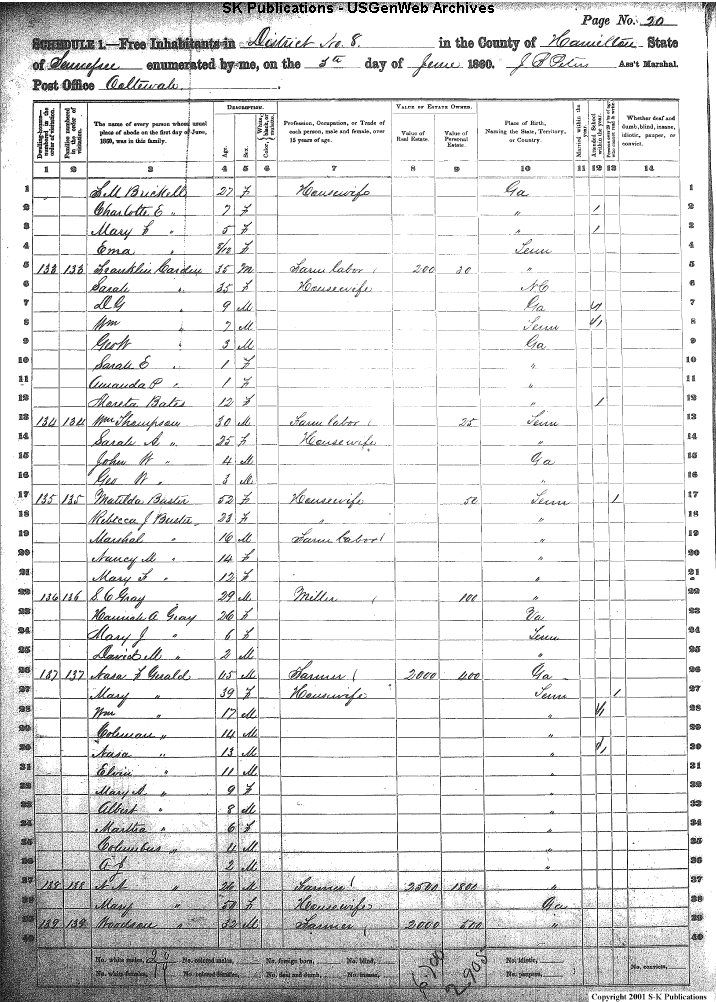 SK Publications - USGenWeb Archives
Page No. 20
SCHEDULE 1.—Free Inhabitants in District No. 8. in the County of Hamilton State
of Tennessee enumerated by me, on the 5th day of June 1860. Ass't Marshal.
Post Office Ooltewah
DESCRIPTION. VALUE OF ESTATE OWNED.
Dwelling-houses—numbered in the order of visitation. Families numbered in the order of visitation. The name of every person whose usual place of abode on the first day of June, 1860, was in this family. Age. Sex. Color, Profession, Occupation, or Trade of each person, male and female, over 15 years of age. Value of Real Estate. Value of Personal Estate. Place of Birth, Naming the State, Territory, or Country. Married within the year. Attended School within the year. Whether deaf and dumb, blind, insane, idiotic, pauper, or convict.
1 2 3 4 5 6 7 8 9 10 11 12 13 14
1 S. M Brickell 27 F Housewife Ga 1
2 Charlotte E " 7 F " 1 2
3 Mary F " 5 F " 1 3
4 Ema " F Tenn 4
5 133 133 Franklin Carden 35 M Farm labor 200 30 " 5
6 Sarah " 35 F Housewife NC 6
7 D G " 9 M Ga 7
8 Wm " 7 M Tenn 8
9 Geo W " 3 M Ga 9
10 Sarah E " 1 F " 10
11 Amanda P " 1 F " 11
12 Bates 12 F " 1 12
13 134 134 Wm Thompson 30 M Farm labor 25 Tenn 13
14 Sarah A " 25 F Housewife " 14
15 John W " 4 M Ga 15
16 Geo W " 3 M " 16
17 135 135 Matilda Buster 52 F Housewife 50 Tenn 1 17
18 Rebecca J Buster 23 F " " 18
19 Marshal " 16 M Farm labor " 19
20 Nancy M " 14 F " 20
21 Mary F " 12 F " 21
22 136 136 S. C Gray 29 M Miller 100 " 22
23 Hannah A Gray 26 F Va 23
24 Mary J " 6 F Tenn 24
25 David M " 2 M " 25
26 137 137 Nasa F Gerald 45 M Farmer 2000 400 Ga 26
27 Mary " 39 F Housewife Tenn 1 27
28 Wm " 17 M " 28
29 Coleman " 14 M " 29
30 Nasa " 13 M " 30
31 Elvin " 11 M " 31
32 Mary A " 9 F " 32
33 Albert " 8 M " 33
34 Martha " 6 F " 34
35 Columbus " 4 M " 35
36 2 M " 36
37 138 138 " 26 M Farmer 2500 1800 " 37
38 Mary " 50 F Housewife Ga 38
39 139 139 Woodson " 32 M Farmer 2000 500 " 39
40 40
No. white males, No. colored males, No. foreign born, No. blind, No. idiotic, No. convicts,
No. white females, No. colored females, No. deaf and dumb, No. insane, 6700 2905 No. paupers,
Copyright 2001 S-K Publications